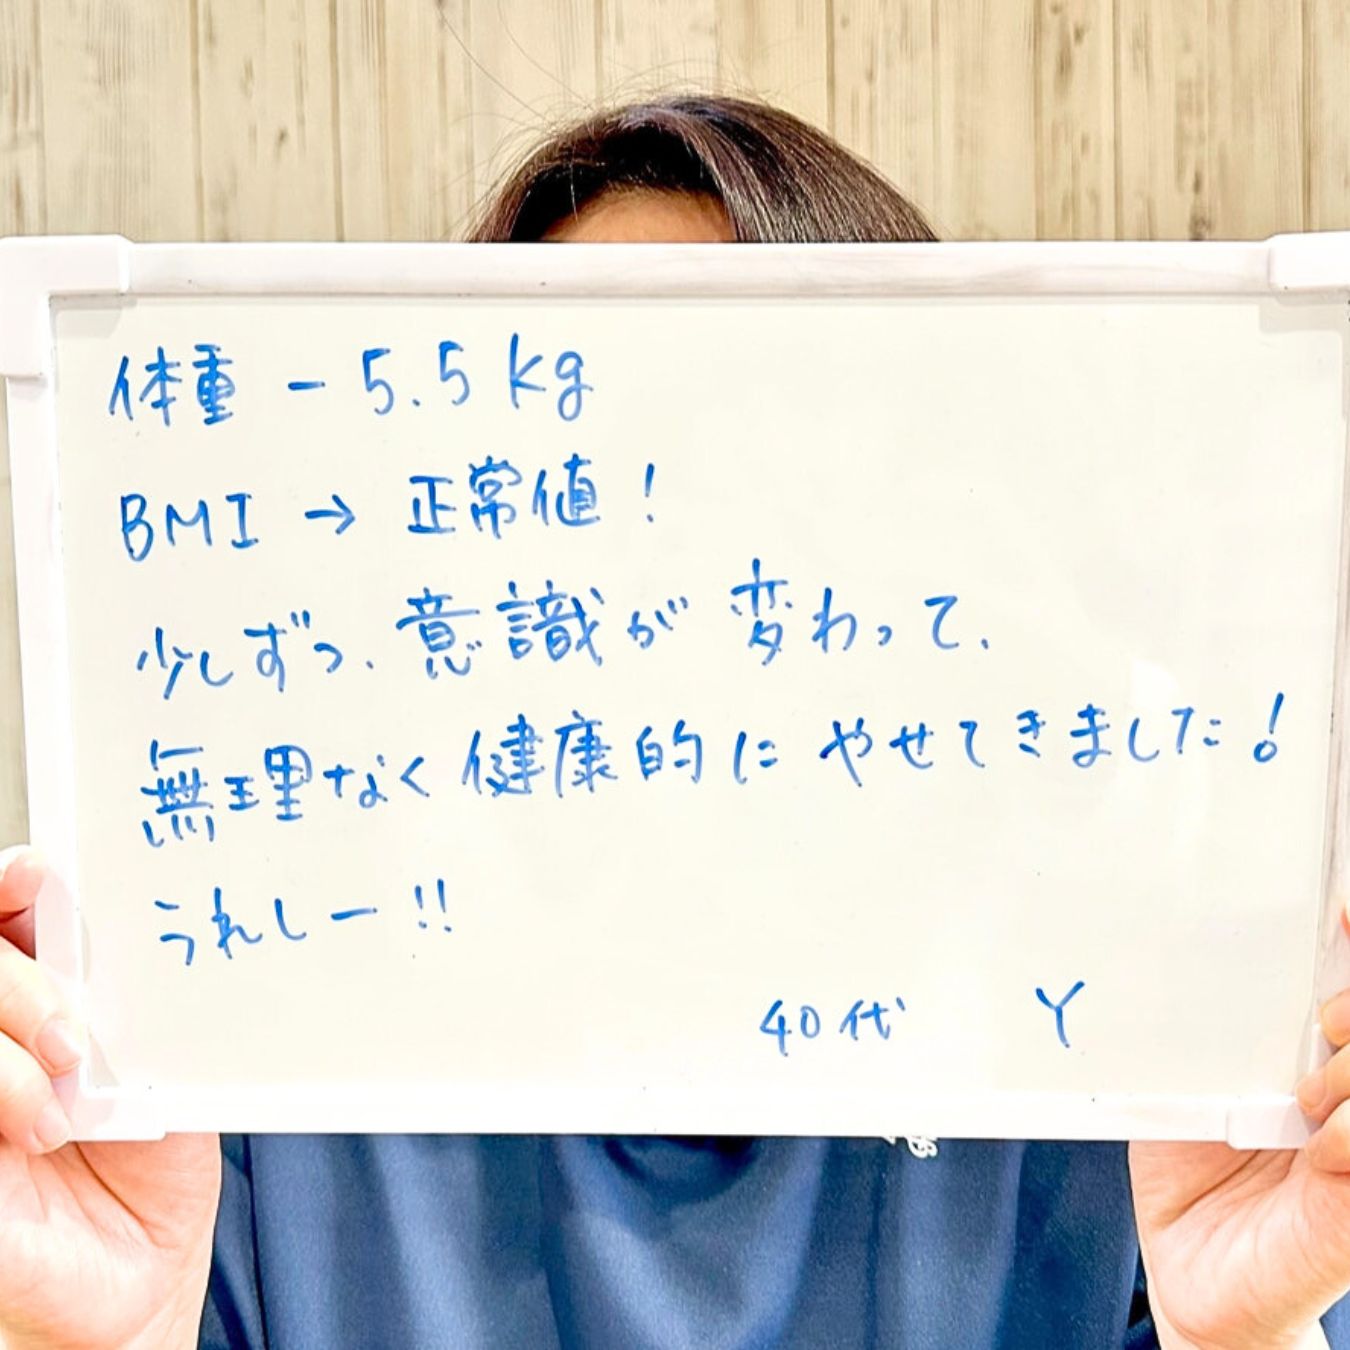 体重 - 5.5 kg
BMI → 正常値!
少しずつ、意識が変わって、
無理なく健康的にやせてきました!
うれしー!!
40代 Y